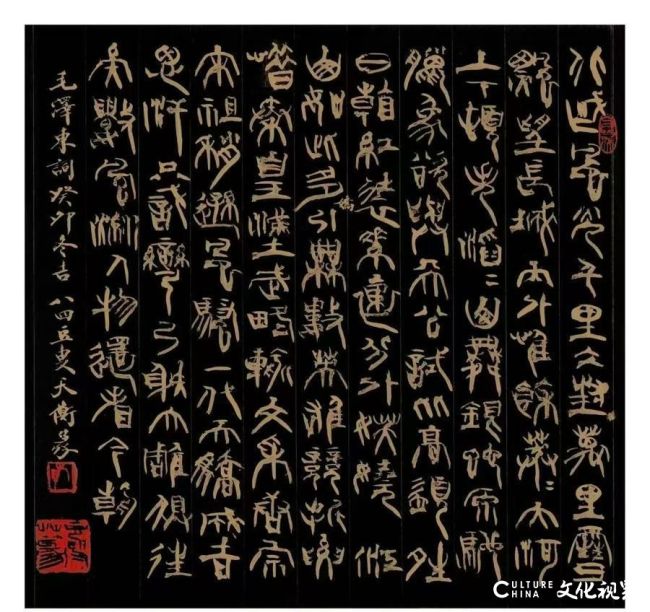 北國風光千里冰封萬里雪
飄望長城內外惟餘莽〻大河
上下頓失滔〻山舞銀蛇原馳
蠟象欲與天公試比高須晴
日看紅裝素裹分外妖嬈江
山如此多嬌引無數英雄競折腰
惜秦皇漢武略輸文采唐宗
宋祖稍遜風騷一代天驕成吉
思汗只識彎弓射大雕俱往
矣數風流人物還看今朝
毛澤東詞癸卯冬吉八四豆叟天衡篆
CULTURE CHINA 文化视界